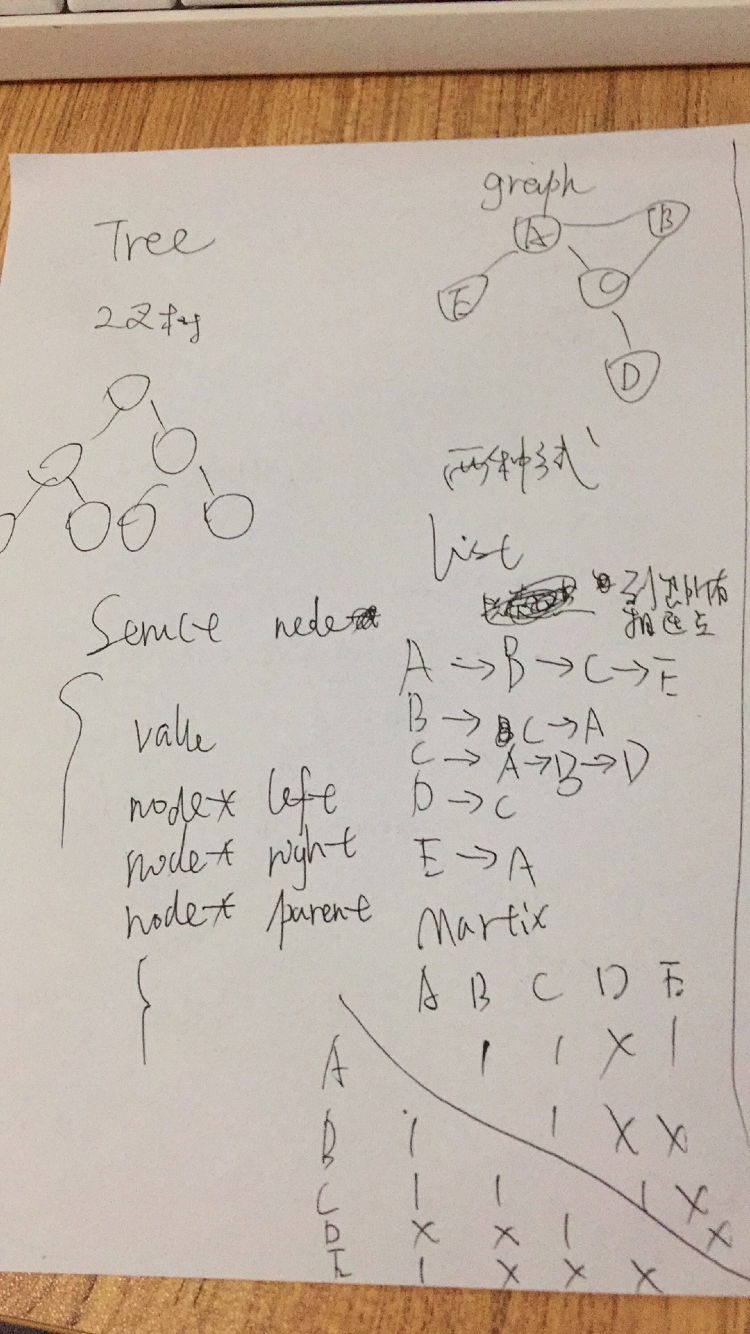 Tree
2叉树
Struct node
{
value
node* left
node* right
node* parent
}
graph
A B
E C
D
两种形式
list
列出所有
相连点
A → B → C → E
B → C → A
C → A → B → D
D → C
E → A
Martix
A B C D E
A 1 1 X 1
B 1 1 X X
C 1 1 1 X
D X X 1 X
E 1 X X X